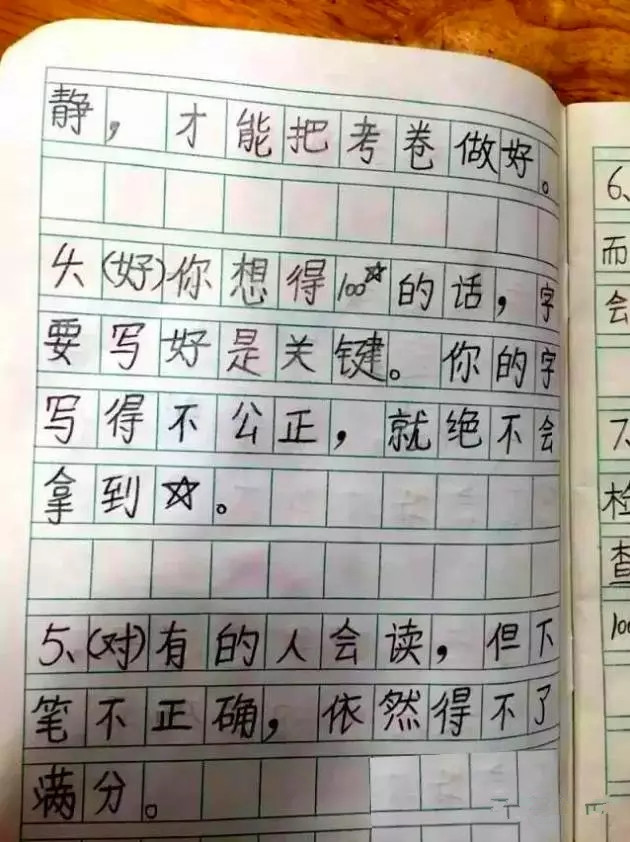 静，才能把考卷做好。
4、(好)你想得100☆的话，字
要写好是关键。你的字
写得不公正，就绝不会
拿到☆。
5、(对)有的人会读，但下
笔不正确，依然得不了
满分。
6、
而
会
7、
检
查
100